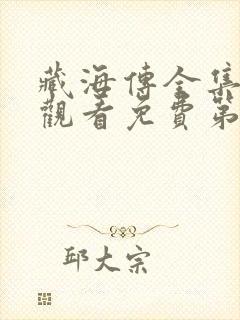 藏海傳全集
觀看免費第
邱大宗